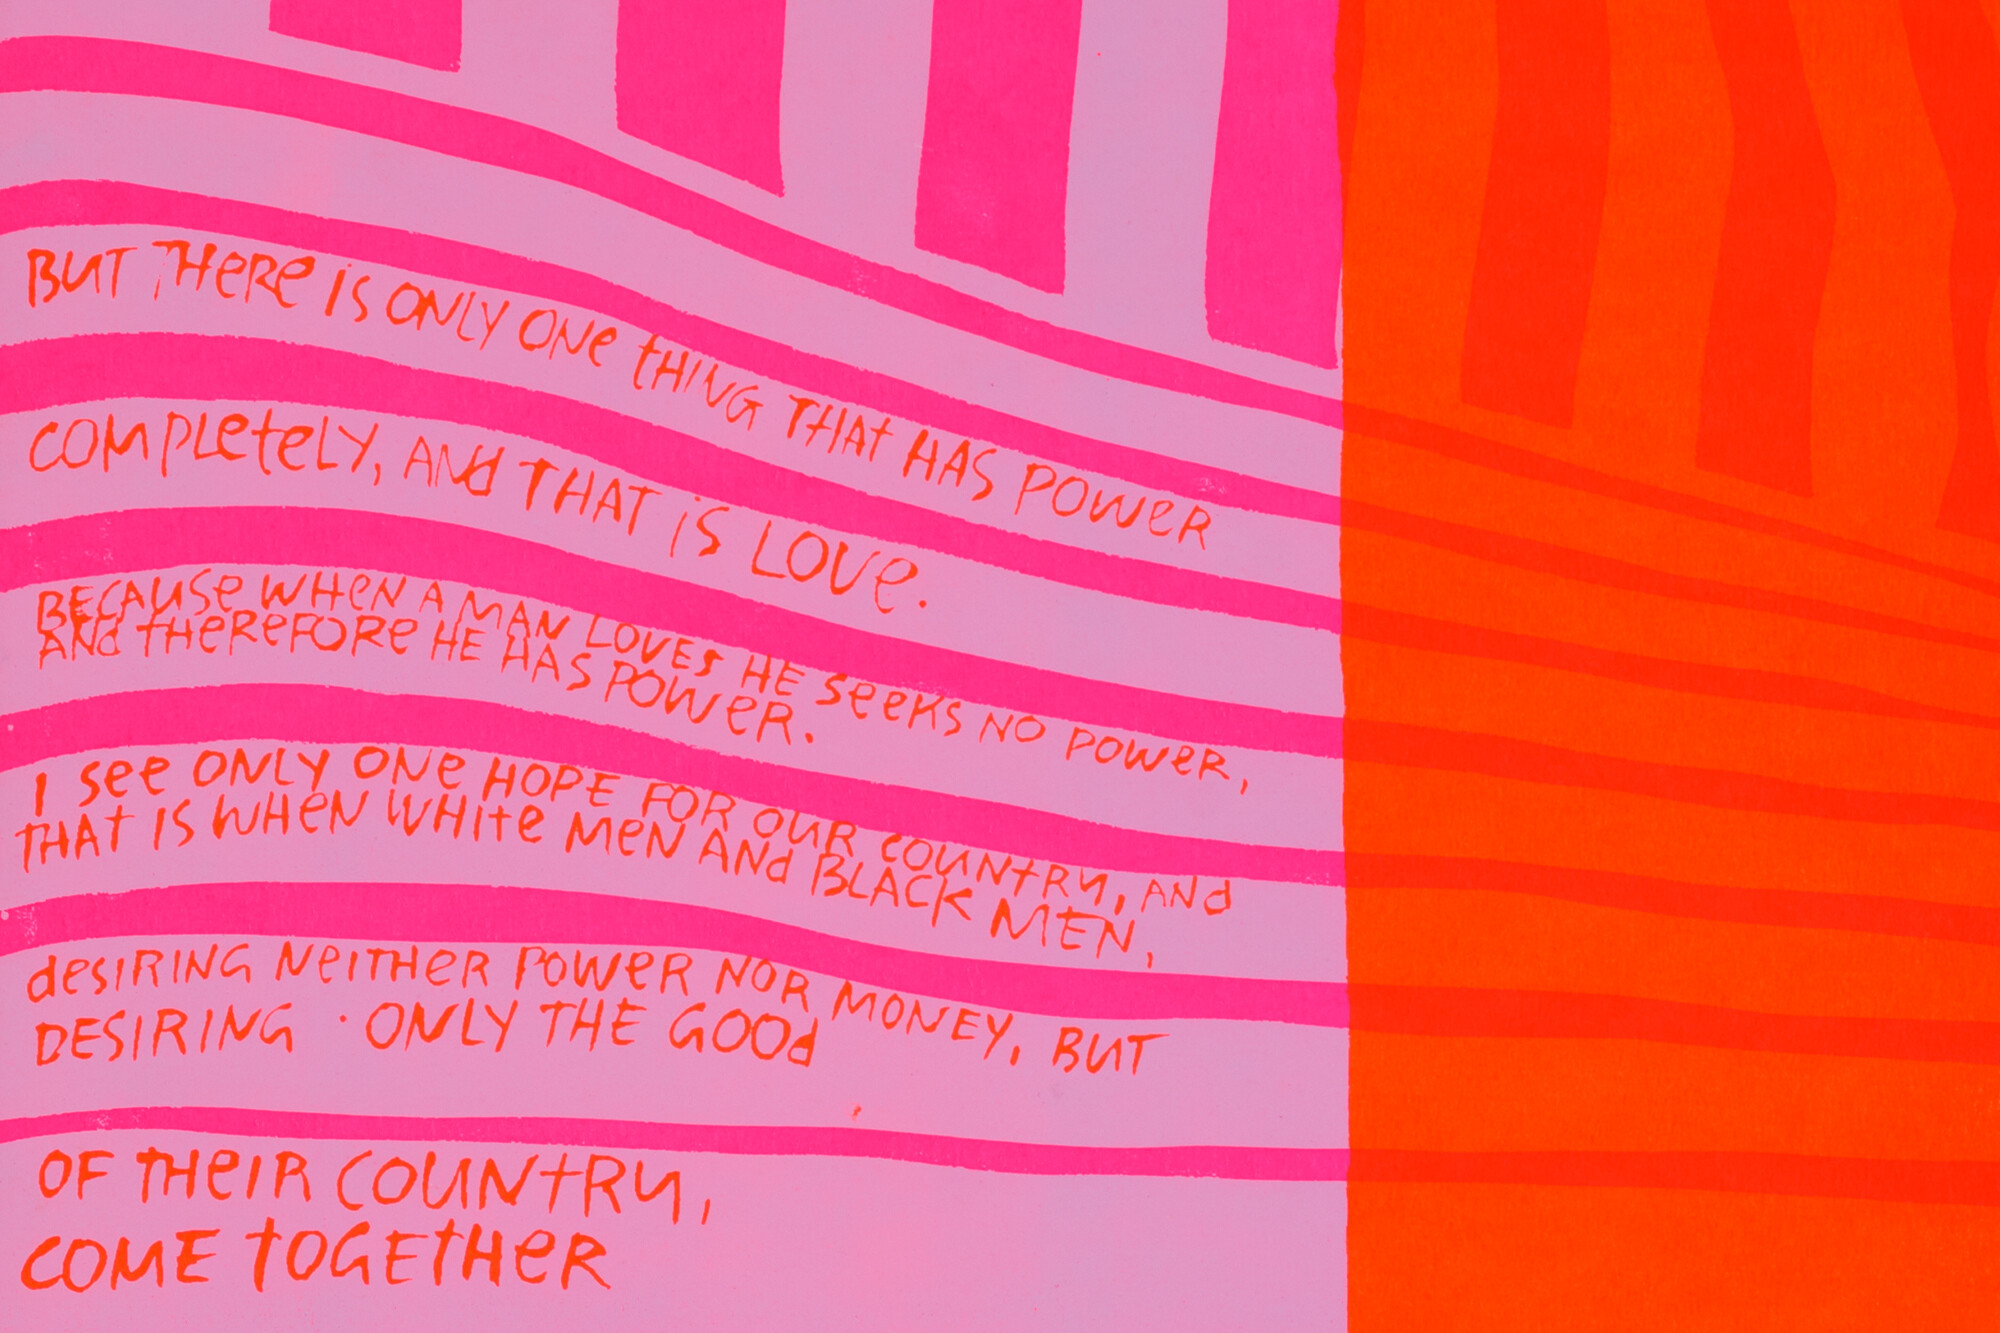 BUT THERE IS ONLY ONE THING THAT HAS POWER
COMPLETELY, AND THAT IS LOVE.
BECAUSE WHEN A MAN LOVES HE SEEKS NO POWER,
AND THEREFORE HE HAS POWER.
I SEE ONLY ONE HOPE FOR OUR COUNTRY, AND
THAT IS WHEN WHITE MEN AND BLACK MEN,
DESIRING NEITHER POWER NOR MONEY, BUT
DESIRING · ONLY THE GOOD
OF THEIR COUNTRY,
COME TOGETHER